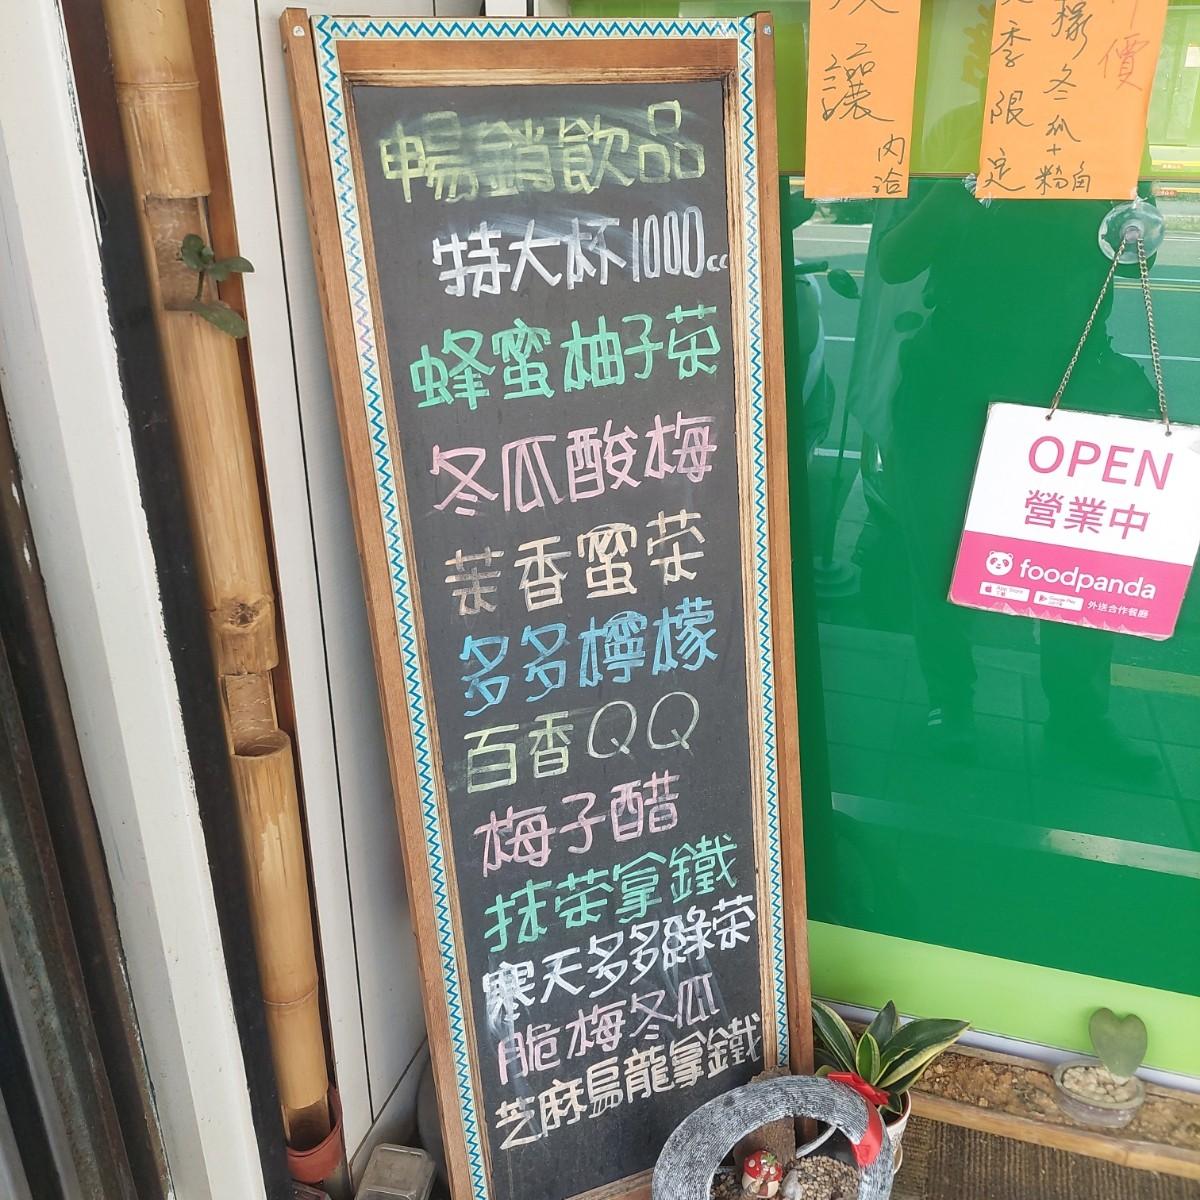 暢銷飲品
特大杯1000cc
蜂蜜柚子茶
冬瓜酸梅
茉香蜜茶
多多檸檬
百香QQ
梅子醋
抹茶拿鐵
寒天多多綠茶
脆梅冬瓜
芝麻烏龍拿鐵
讓
內洽
價
樣冬瓜+粉角
季限定
OPEN
營業中
foodpanda
App Store
Google Play
外送合作餐廳